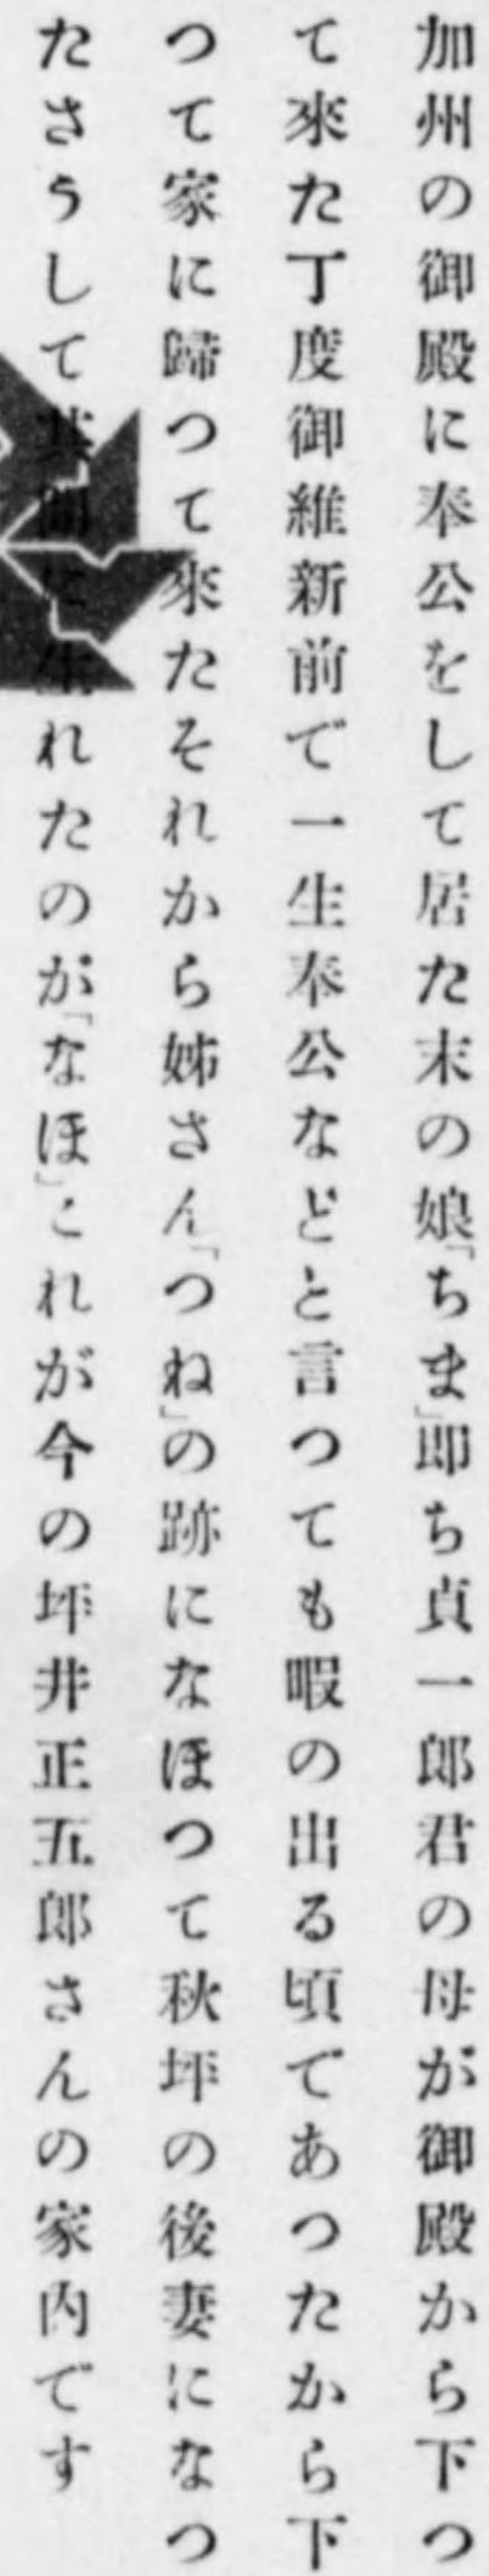 加州の御殿に奉公をして居た末の娘「ちま」即ち貞一郎君の母が御殿から下つ
て來た丁度御維新前で一生奉公などと言つても暇の出る頃であつたから下
つて家に歸つて來たそれから姊さん「つね」の跡になほつて秋坪の後妻になつ
たさうして其間に生れたのが「なほ」これが今の坪井正五郎さんの家内です